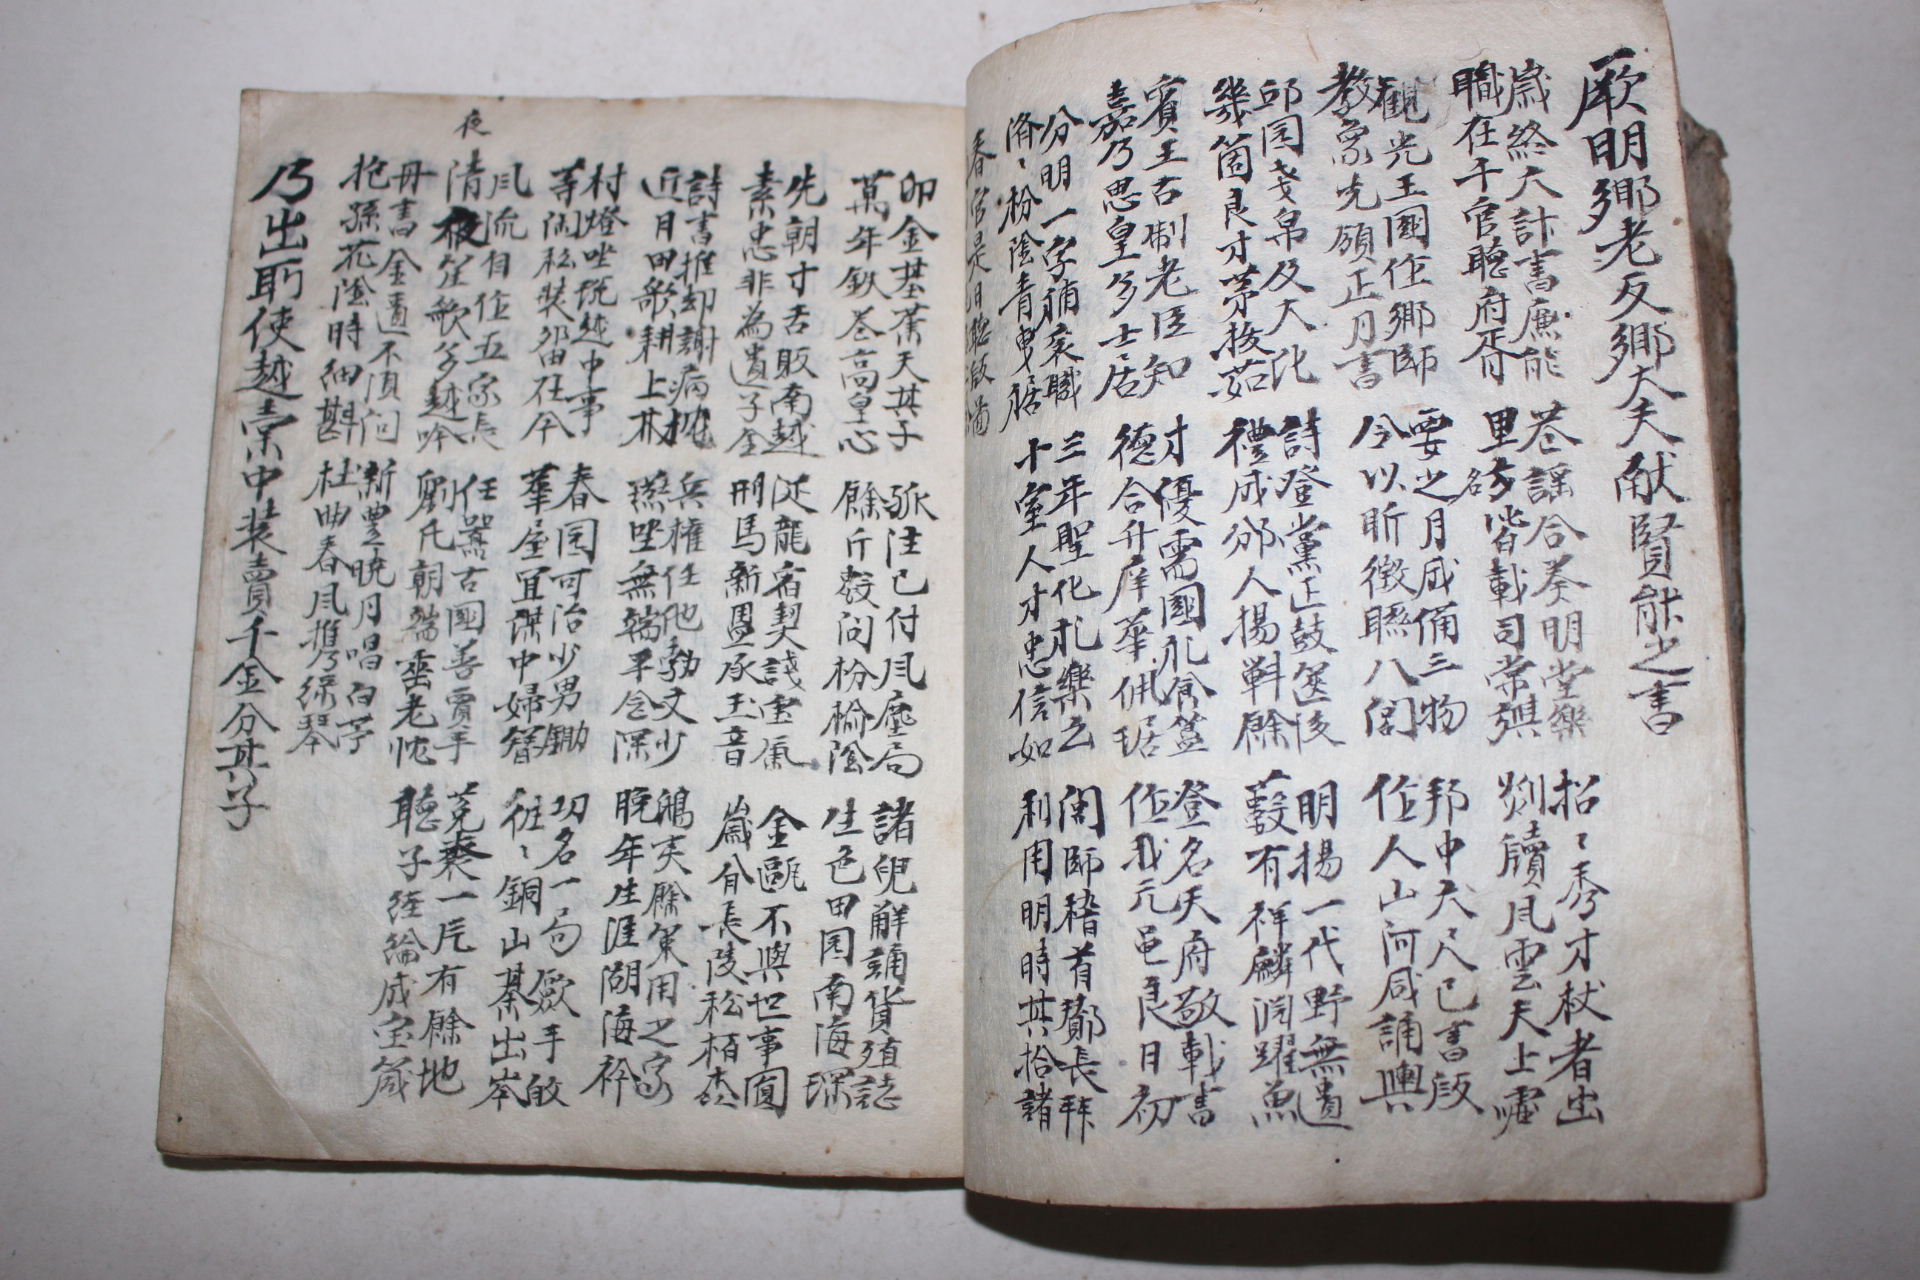 厥明鄕老及鄕大夫献賢能之書
歲終大計書廉能
職在千官聽府胥
巷謠合奏明堂樂
里皆載司常旟
招〻秀才杖者出
剡牘風雲天上噓
觀光王國作鄕師
敎象先頒正月書
要之月成備三物
今以昕徵聯八閭
邦中大尺已書版
作人山河咸誦輿
邱园戔帛及大化
幾箇良才茅拔茹
詩登黨正鼓篋後
禮成鄉人揚觶餘
明揚一代野無遺
藪有祥麟淵躍魚
賓王古制老臣知
嘉乃思皇多士居
才優需國食簋
德合升庠華佩琚
登名天府敬載書
作我元邑良月初
分明一字補袞職
濟〻枌陰靑曳裾
三年聖化礼樂云
十室人才忠信如
閭師稽首鄼長拜
利用明時其拾諸
春官是日聽
夜
卯金基業天其子
萬年巷高皇心
孤注已付風塵局
餘斤數问枌楡陰
諸兒解誦貨殖誌
生色田园南海琛
先朝寸舌販南越
素忠非為遺子金
涎龍宿契談虛氣
刑馬新盟承玉音
金甌不與世事圓
歲有長陵松栢森
詩書推却謝病枕
近月田歌耕上林
兵權任他勃又少
燕坐無端平念深
鴟夷餘策用之家
晩年生涯湖海衿
村燈坐說越中事
等閑私裝留在今
春园可治少男鋤
羣屋宜謀中婦簪
功名一局歛手的
往〻銅山棊出岑
風流自作五家長
清夜笙歌多越吟
任囂古國善賈手
劉氏朝端垂老忱
菟裘一片有餘地
聽子經綸成宝箴
丹書金匱不須问
抱孫花陰時細斟
新豊曉月唱白苧
杜曲春風携綠琴
乃出所使越橐中裝賣千金分其子